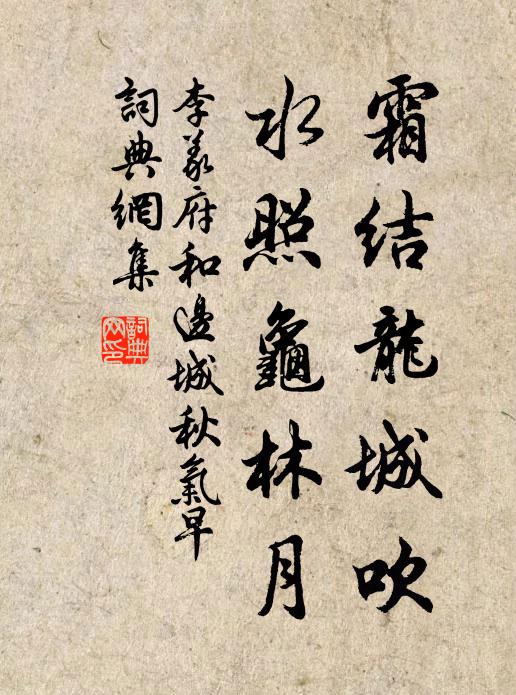 霜結龍城吹
水照龜林月
李義府和邊城秋氣早
詞典網集
詞典網印